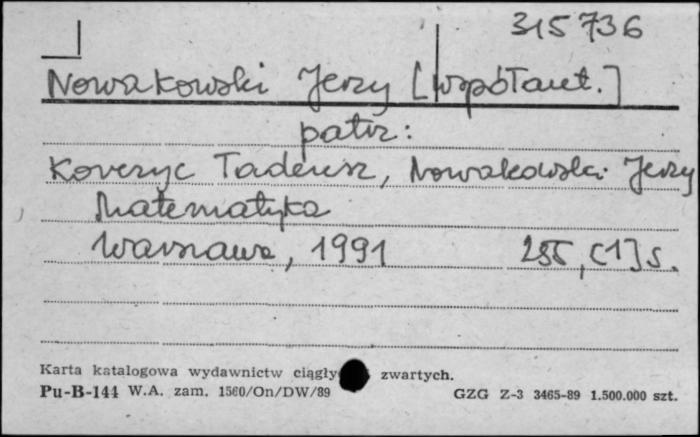 315736
Nowakowski Jerzy [współaut.]
patrz:
Korczyc Tadeusz, Nowakowski Jerzy
Matematyka
Warszawa, 1991 285, [1] s.
Karta katalogowa wydawnictw ciągły zwartych.
Pu-B-144 W.A. zam. 1560/On/DW/89 GZG Z-3 3465-89 1.500.000 szt.